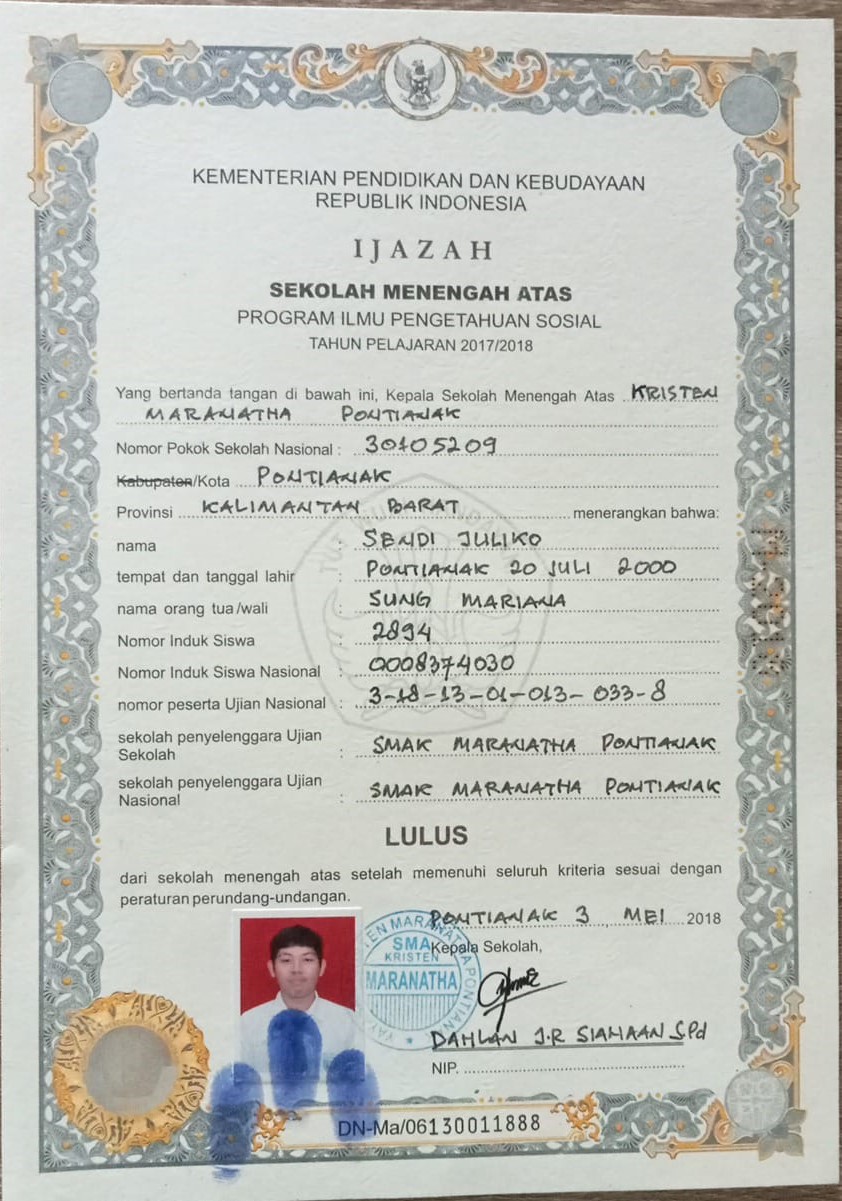 KEMENTERIAN PENDIDIKAN DAN KEBUDAYAAN
REPUBLIK INDONESIA
IJAZAH
SEKOLAH MENENGAH ATAS
PROGRAM ILMU PENGETAHUAN SOSIAL
TAHUN PELAJARAN 2017/2018
Yang bertanda tangan di bawah ini, Kepala Sekolah Menengah Atas KRISTEN
MARANATHA PONTIANAK
Nomor Pokok Sekolah Nasional : 30105209
Kabupaten/Kota PONTIANAK
Provinsi KALIMANTAN BARAT menerangkan bahwa:
nama : SENDI JULIKO
tempat dan tanggal lahir : PONTIANAK 20 JULI 2000
nama orang tua/wali : SUNG MARIANA
Nomor Induk Siswa : 2894
Nomor Induk Siswa Nasional : 0008374030
nomor peserta Ujian Nasional : 3-18-13-01-013-033-8
sekolah penyelenggara Ujian
Sekolah : SMAK MARANATHA PONTIANAK
sekolah penyelenggara Ujian
Nasional : SMAK MARANATHA PONTIANAK
LULUS
dari sekolah menengah atas setelah memenuhi seluruh kriteria sesuai dengan
peraturan perundang-undangan.
PONTIANAK 3 MEI 2018
Kepala Sekolah,
SMA
KRISTEN
MARANATHA
DAHLAN J.R SIAHAAN S.Pd
NIP.
DN-Ma/06130011888